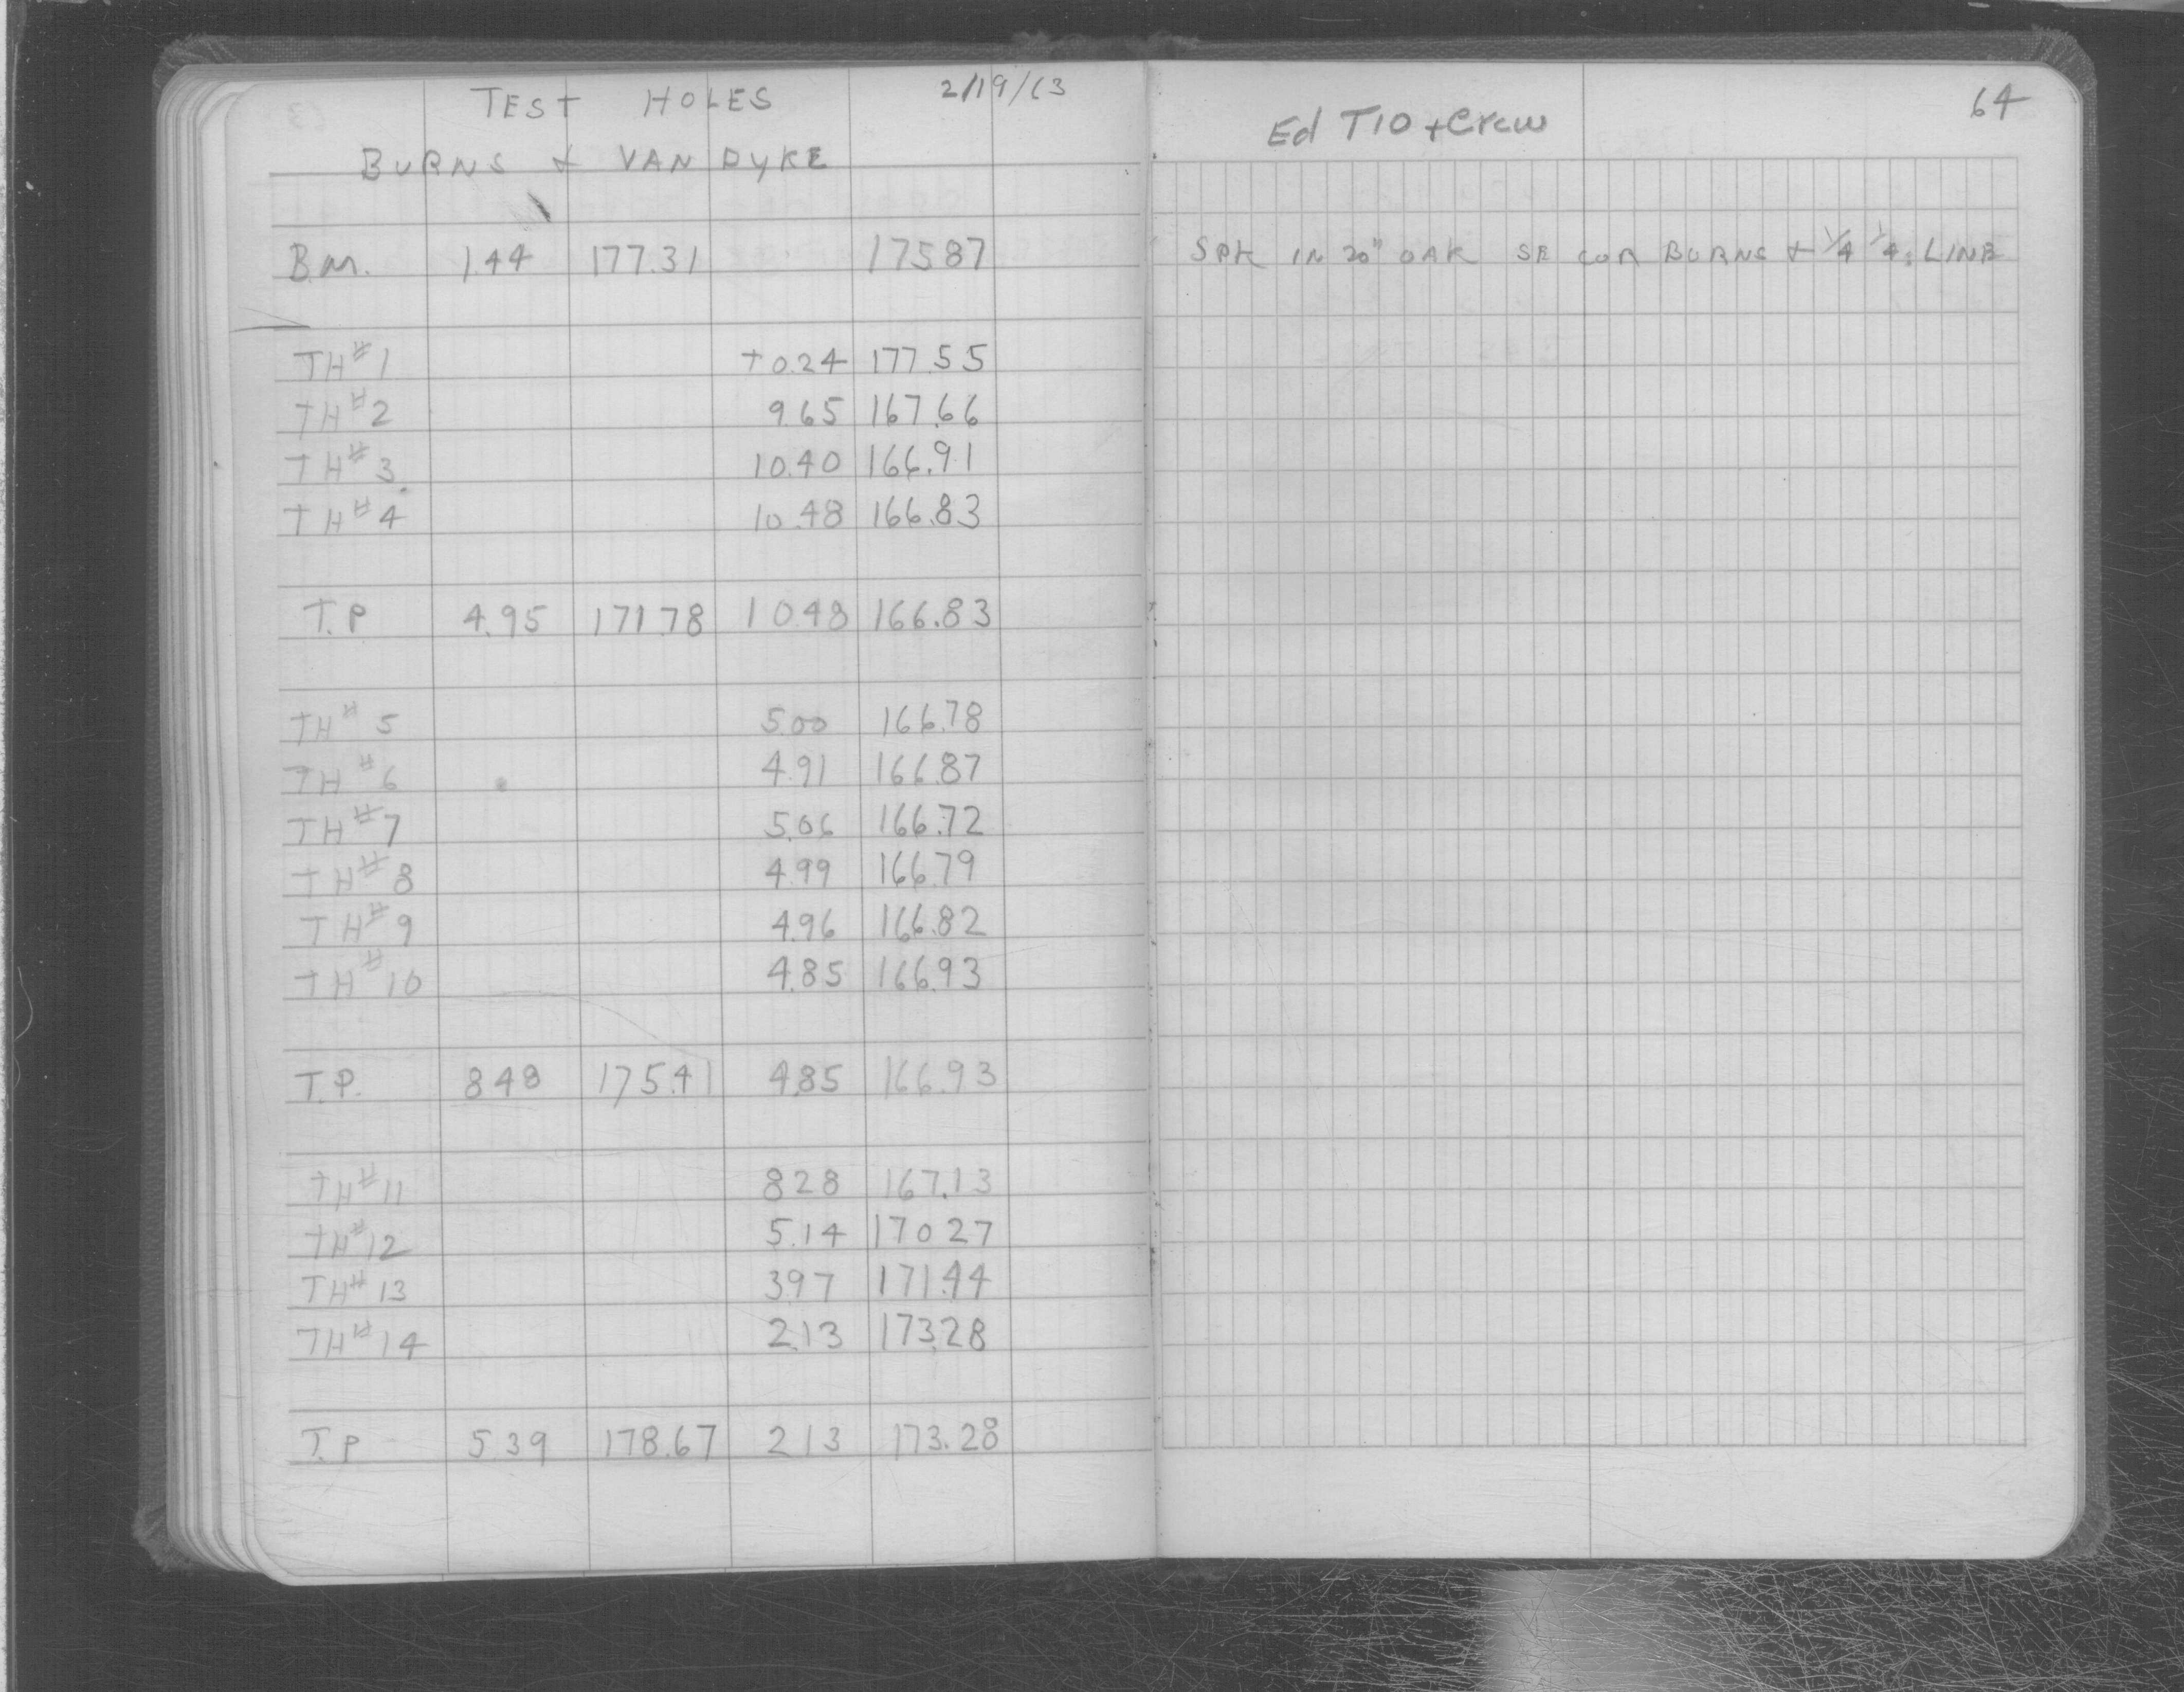 TEST HOLES 2/19/63
BURNS + VAN DYKE
B.M. 1.44 177.31 175.87
TH#1 +0.24 177.55
TH#2 9.65 167.66
TH#3 10.40 166.91
TH#4 10.48 166.83
T.P. 4.95 171.78 10.48 166.83
TH#5 5.00 166.78
TH#6 4.91 166.87
TH#7 5.06 166.72
TH#8 4.99 166.79
TH#9 4.96 166.82
TH#10 4.85 166.93
T.P. 8.48 175.41 4.85 166.93
TH#11 8.28 167.13
TH#12 5.14 170.27
TH#13 3.97 171.44
TH#14 2.13 173.28
T.P 5.39 178.67 2.13 173.28
64
Ed T10 + Crew
SPK IN 20" OAK SE COR BURNS + 1/4 1/4 LINE